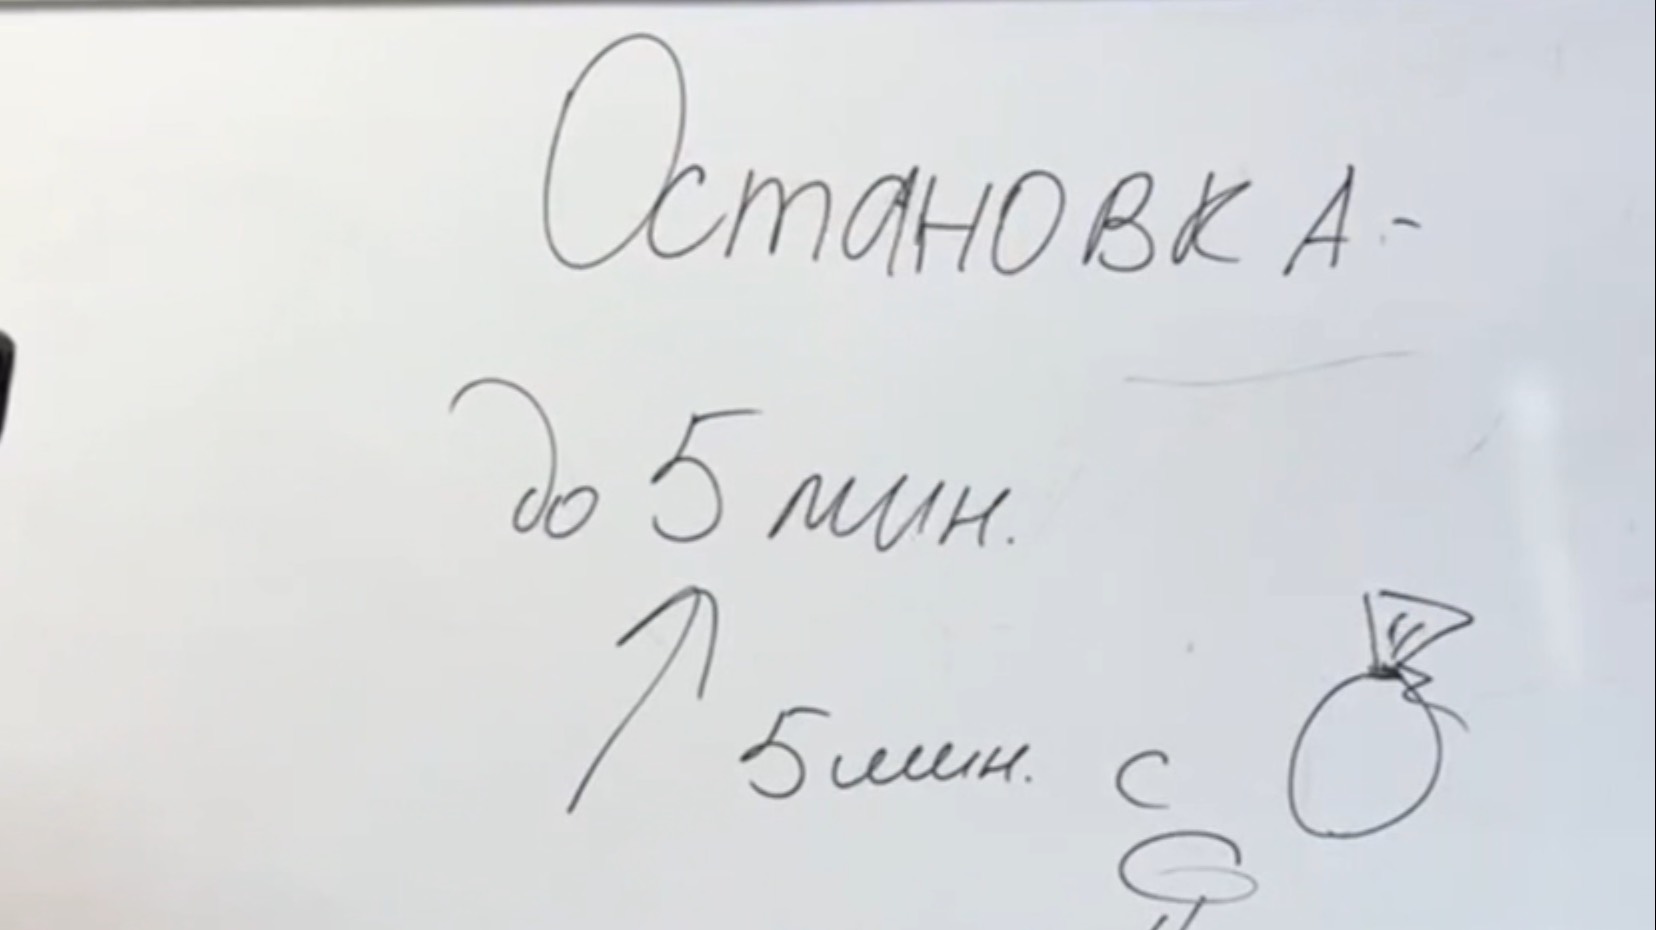 Остановка -
до 5 мин.
5 мин. с